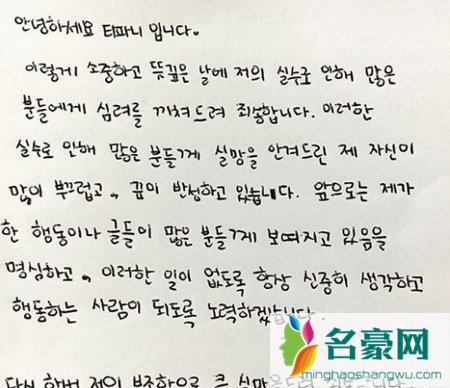 안녕하세요 티파니 입니다.
이렇게 소중하고 뜻깊은 날에 저의 실수로 인해 많은
분들에게 심려를 끼쳐드려 죄송합니다. 이러한
실수로 인해 많은 분들게 실망을 안겨드린 제 자신이
많이 부끄럽고, 깊이 반성하고 있습니다. 앞으로는 제가
한 행동이나 글들이 많은 분들게 보여지고 있음을
명심하고, 이러한 일이 없도록 항상 신중히 생각하고
행동하는 사람이 되도록 노력하겠습니다.
다시 한번 저의 부족함으로 큰 실망을
名豪网
minghaoshangwu.com